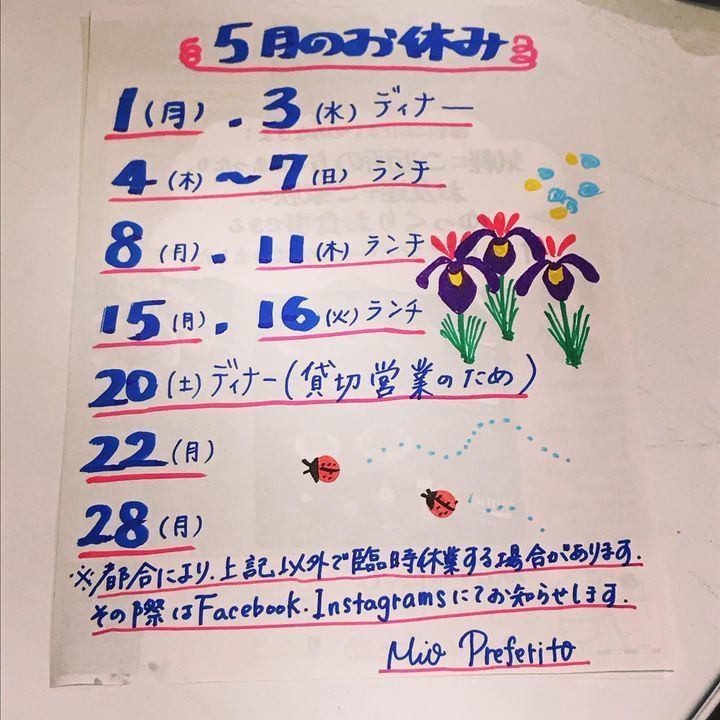 5月のお休み
1(月).3(水)ディナー
4(木)～7(日)ランチ
8(月).11(木)ランチ
15(月).16(火)ランチ
20(土)ディナー(貸切営業のため)
22(月)
28(月)
※都合により.上記以外で臨時休業する場合があります.
その際はFacebook.Instagramsにてお知らせします.
Mio Preferito